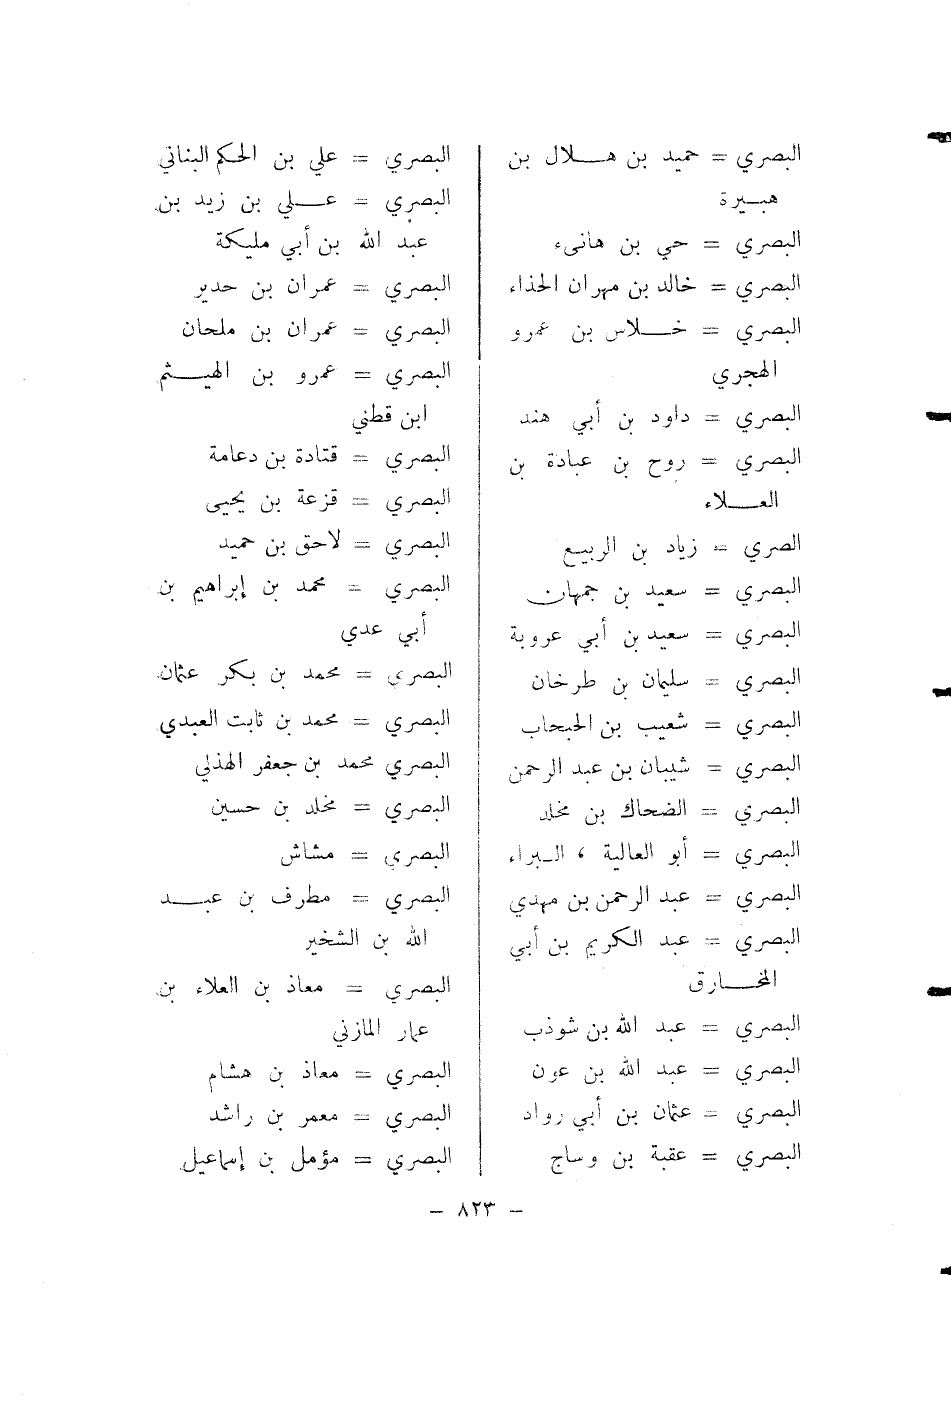 البصري = حميد بن هلال بن
هبيرة
البصري = حي بن هانىء
البصري = خالد بن مهران الحذاء
البصري = خلاس بن عمرو
الهجري
البصري = داود بن أبي هند
البصري = روح بن عبادة بن
العلاء
الصري = زياد بن الربيع
البصري = سعيد بن جمهان
البصري = سعيد بن أبي عروبة
البصري = سليمان بن طرخان
البصري = شعيب بن الحبحاب
البصري = شيبان بن عبد الرحمن
البصري = الضحاك بن مخلد
البصري = أبو العالية ، البراء
البصري = عبد الرحمن بن مهدي
البصري = عبد الكريم بن أبي
المخارق
البصري = عبد الله بن شوذب
البصري = عبد الله بن عون
البصري = عثمان بن أبي رواد
البصري = عقبة بن وساج
البصري = علي بن الحكم البناني
البصري = علي بن زيد بن
عبد الله بن أبي مليكة
البصري = عمران بن حدير
البصري = عمران بن ملحان
البصري = عمرو بن الهيثم
ابن قطني
البصري = قتادة بن دعامة
البصري = قزعة بن يحيى
البصري = لاحق بن حميد
البصري = محمد بن إبراهيم بن
أبي عدي
البصري = محمد بن بكر عثمان
البصري = محمد بن ثابت العبدي
البصري محمد بن جعفر الهذلي
البصري = مخلد بن حسين
البصري = مشاش
البصري = مطرف بن عبد
الله بن الشخير
البصري = معاذ بن العلاء بن
عمار المازني
البصري = معاذ بن هشام
البصري = معمر بن راشد
البصري = مؤمل بن إسماعيل
- ٨٢٣ -